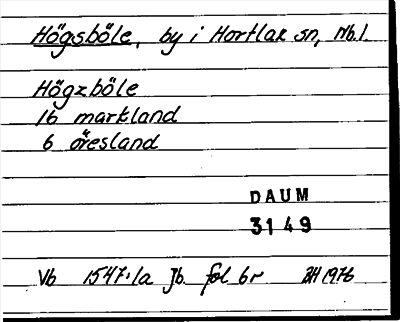 Högsböle, by i Hortlax sn, Nb.l.
Högzböle
16 markland
6 öresland
DAUM
3149
Vb 1547:1a Jb. fol 6r BH 1976